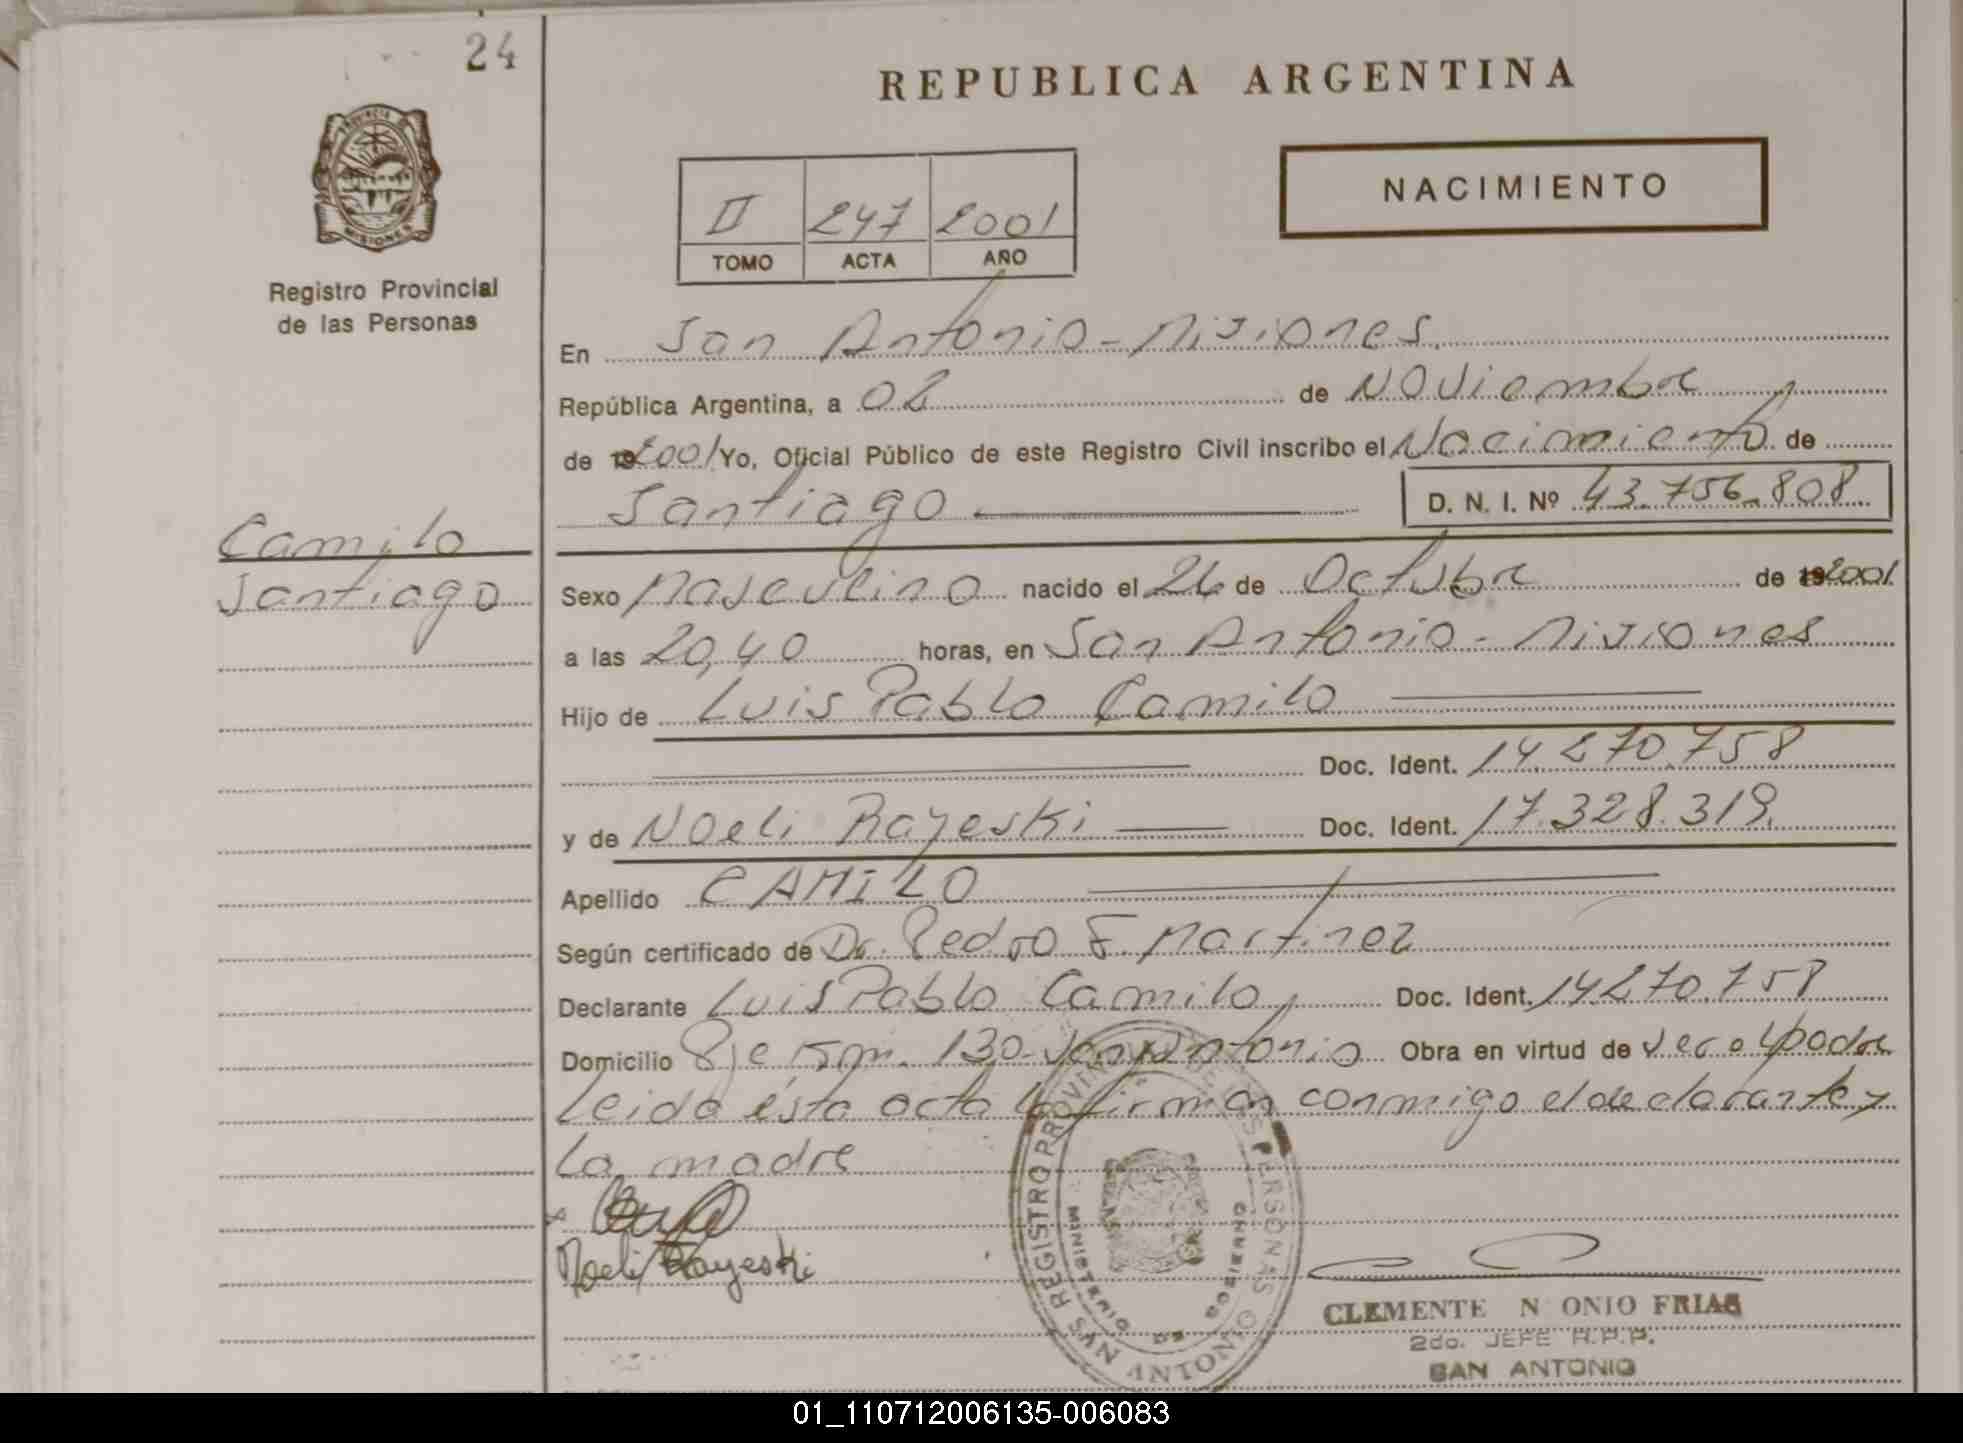 24
REPUBLICA ARGENTINA
PROVINCIA DE
MISIONES
NACIMIENTO
II 247 2001
TOMO ACTA AÑO
Registro Provincial
de las Personas
En San Antonio - Misiones.
República Argentina, a 02 de Noviembre
de 192001 Yo, Oficial Público de este Registro Civil inscribo el Nacimiento de
Santiago D. N. I. Nº 43.756.808
Camilo
Santiago
Sexo Masculino nacido el 26 de Octubre de 192001
a las 20,40 horas, en San Antonio - Misiones
Hijo de Luis Pablo Camilo
Doc. Ident. 14.270.758
y de Noeli Rayeski Doc. Ident. 17.328.319.
Apellido CAMILO
Según certificado de Dr. Pedro F. Martinez
Declarante Luis Pablo Camilo, Doc. Ident. 14270.758
Domicilio Km. 130 - San Antonio Obra en virtud de ser el padre
Leida ésta acta la firman conmigo el declarante y
La madre
Noeli Rayeski
REGISTRO PROVINCIAL DE LAS PERSONAS
MINISTERIO DE GOBIERNO
SAN ANTONIO
CLEMENTE N ONIO FRIAS
2do. JEFE R.P.P.
SAN ANTONIO
01_110712006135-006083